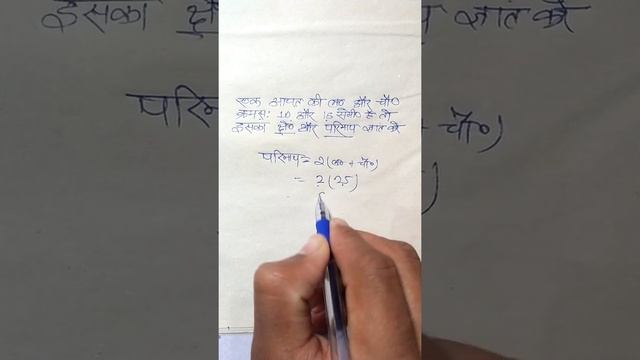 एक आयत की ल० और चौ०
क्रमशः 10 और 15 सेमी० है तो
इसका क्षे० और परिमाप ज्ञात करे
परिमाप = 2(ल० + चौ०)
= 2(25)